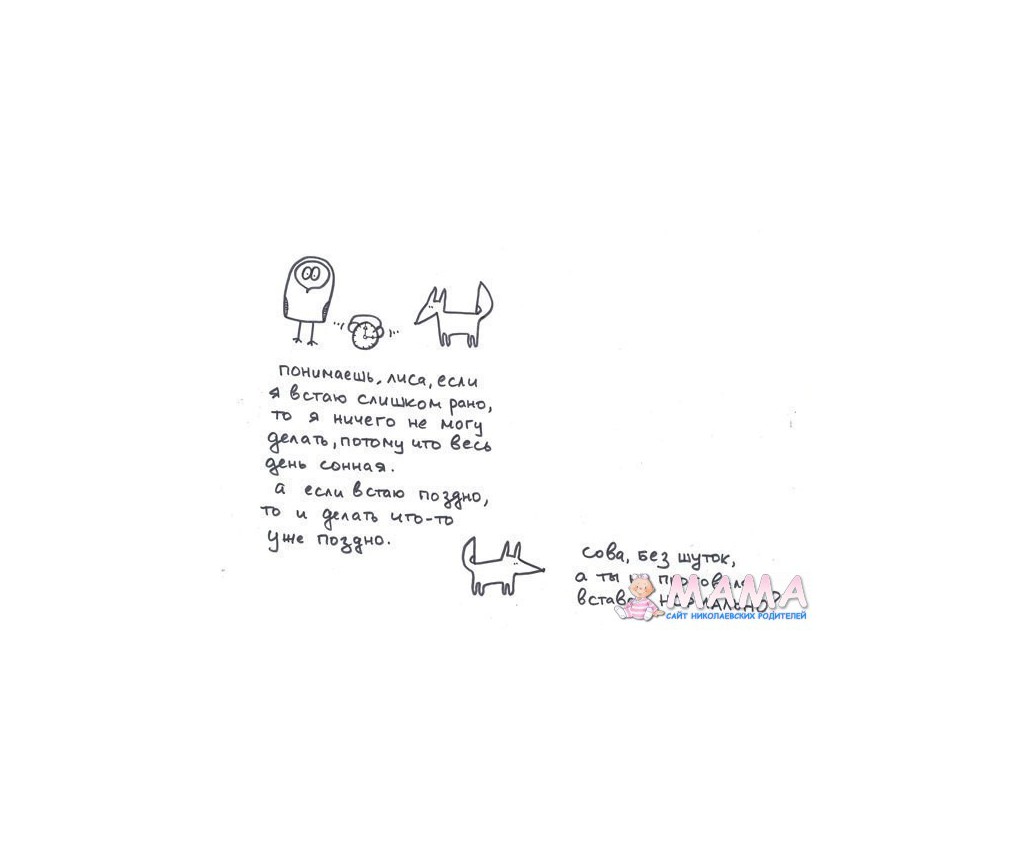 понимаешь, лиса, если
я встаю слишком рано,
то я ничего не могу
делать, потому что весь
день сонная.
а если встаю поздно,
то и делать что-то
уже поздно.
сова, без шуток,
а ты
МАМА
САЙТ НИКОЛАЕВСКИХ РОДИТЕЛЕЙ